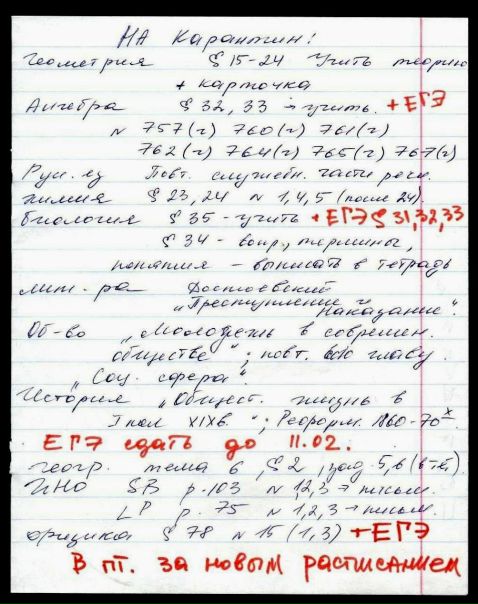 НА Карантин!
Геометрия § 15-24 Учить теорию
+ карточка
Алгебра § 32, 33 - учить. + ЕГЭ
N 757(г) 760(г) 761(г)
762(г) 764(г) 765(г) 767(г)
Рус. яз Повт. служебн. части речи.
химия § 23, 24 N 1,4,5 (после 24).
биология § 35 - учить + ЕГЭ § 31,32,33
§ 34 - вопр., термины,
понятия - выписать в тетрадь
лит-ра Достоевский
"Преступление и
наказание".
Об-во "Молодежь в современ.
обществе"; повт. всю главу
"Соц. сфера".
История "Общест. жизнь в
I пол XIXв."; Реформ. 1860-70х
ЕГЭ сдать до 11.02.
геогр. тема 6, § 2, зад. 5,6
ИНО SB p.103 N 1,2,3 → письм.
LP p. 75 N 1,2,3 → письм.
физика § 78 N 15 (1,3) + ЕГЭ
В пт. за новым расписанием